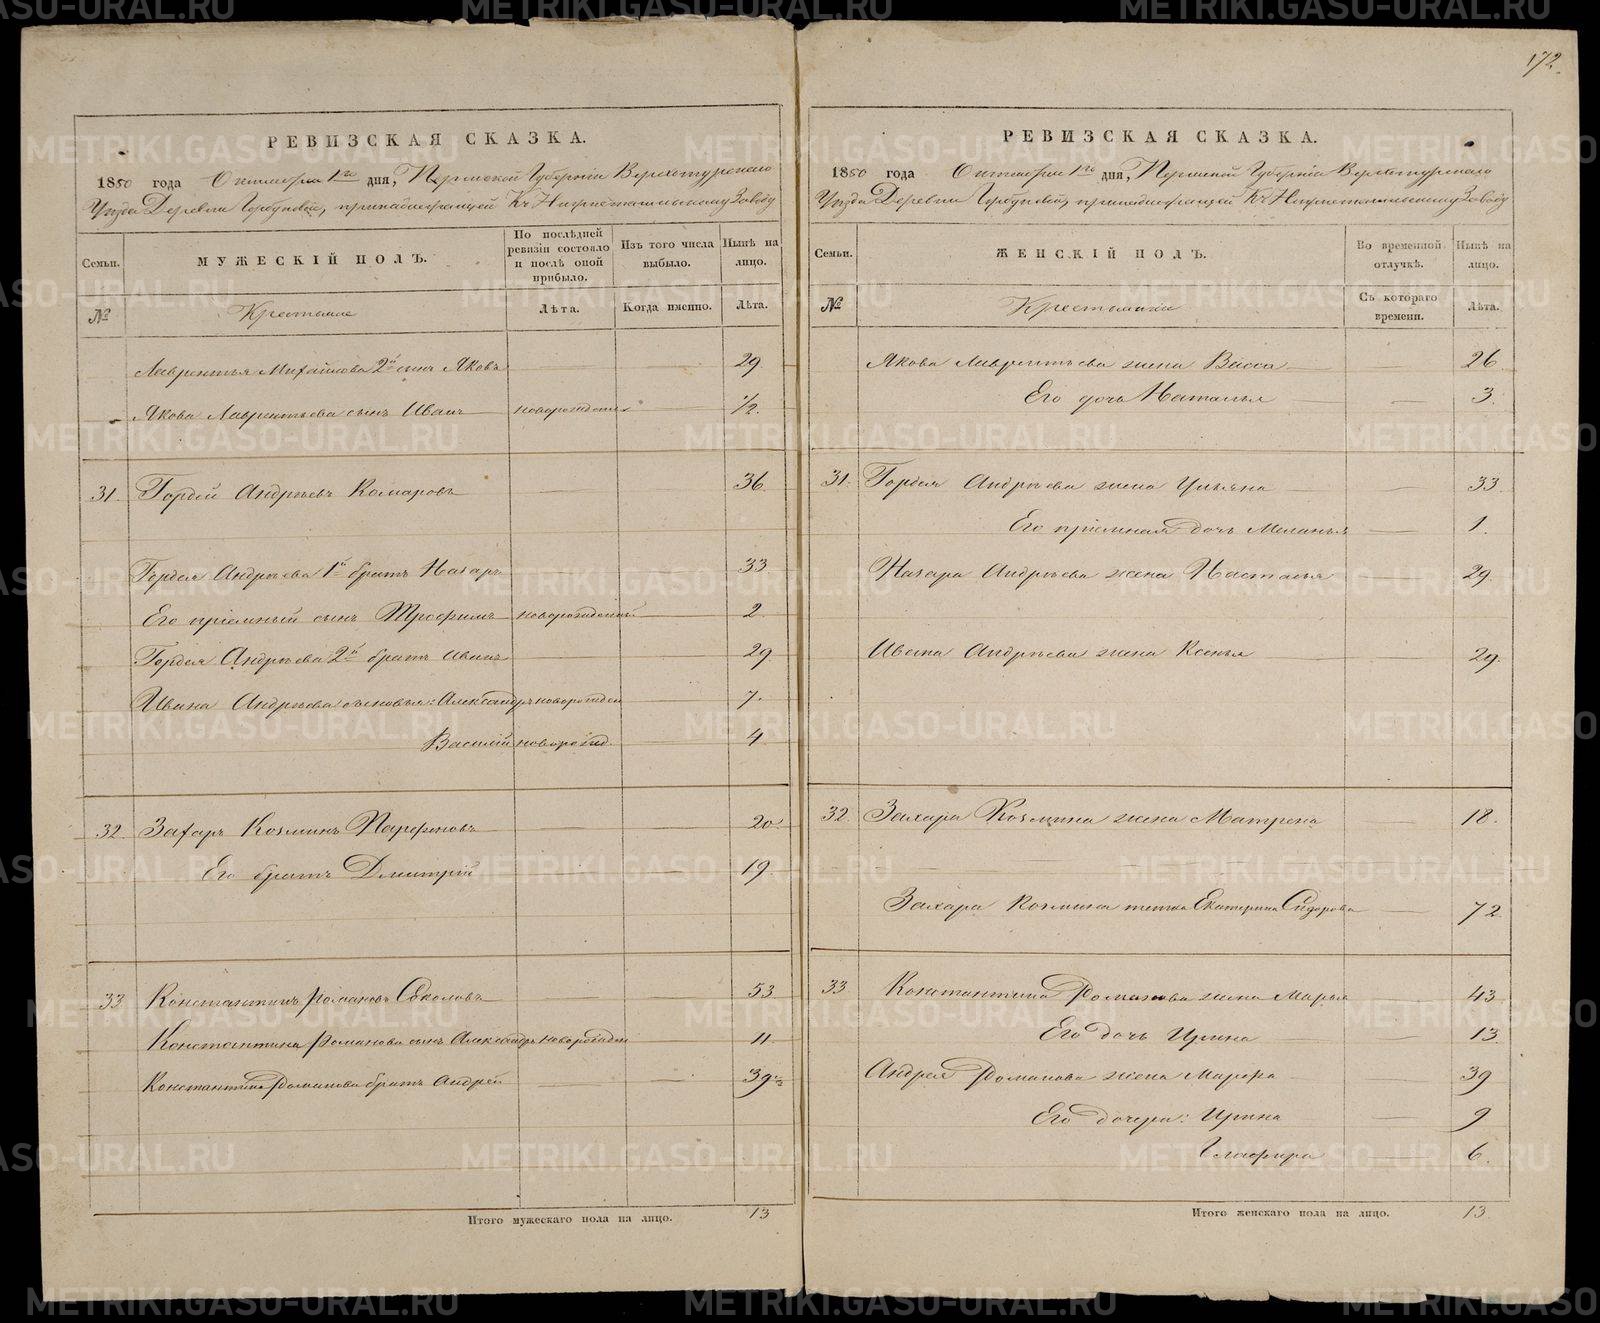 172.
РЕВИЗСКАЯ СКАЗКА.
1850 года Октября 1го дня, Пермской Губерніи Верхотурскаго
Уѣзда Деревни Горбуновой, принадлежащей Къ Нижнетагильскому Заводу
Семьи.
МУЖЕСКІЙ ПОЛЪ.
По послѣдней ревизіи состояло и послѣ оной прибыло.
Изъ того числа выбыло.
Нынѣ на лицо.
№
Крестьяне
Лѣта.
Когда именно.
Лѣта.
Лаврентья Михайлова 2й сынъ Яковъ 29.
Якова Лаврентьева сынъ Иванъ новорожденъ 1/2.
31. Гордей Андреевъ Комаровъ 36.
Гордея Андреева 1й братъ Назаръ 33
Его пріемный сынъ Трофимъ новорожденый 2.
Гордея Андреева 2й братъ Иванъ 29
Ивана Андреева сыновья: Александръ новорожден 7.
Василій новорожд. 4.
32. Захаръ Козминъ Парфеновъ 20.
Его братъ Дмитрій 19.
33 Константинъ Романовъ Соколовъ 53
Константина Романова сынъ Александръ новорожден 11.
Константина Романова братъ Андрей 39 1/2
Итого мужескаго пола на лицо. 13
РЕВИЗСКАЯ СКАЗКА.
1850 года Октября 1го дня, Пермской Губерніи Верхотурскаго
Уѣзда Деревни Горбуновой, принадлежащей Къ Нижнетагильскому Заводу
Семьи.
ЖЕНСКІЙ ПОЛЪ.
Во временной отлучкѣ.
Нынѣ на лицо.
№
Крестьянки
Съ котораго времени.
Лѣта.
Якова Лаврентьева жена Васса 26.
Его дочь Наталья 3.
31. Гордея Андреева жена Ульяна 33.
Его пріемная дочь Меланья 1.
Назара Андреева жена Настасья 29.
Ивана Андреева жена Ксенья 29.
32. Захара Козмина жена Матрена 18.
Захара Козмина тетка Екатерина Сидорова 72.
33. Константина Романова жена Марья 43
Его дочь Ирина 13.
Андрея Романова жена Марфа 39
Его дочери: Ирина 9
Глафира 6.
Итого женскаго пола на лицо. 13.
METRIKI.GASO-URAL.RU